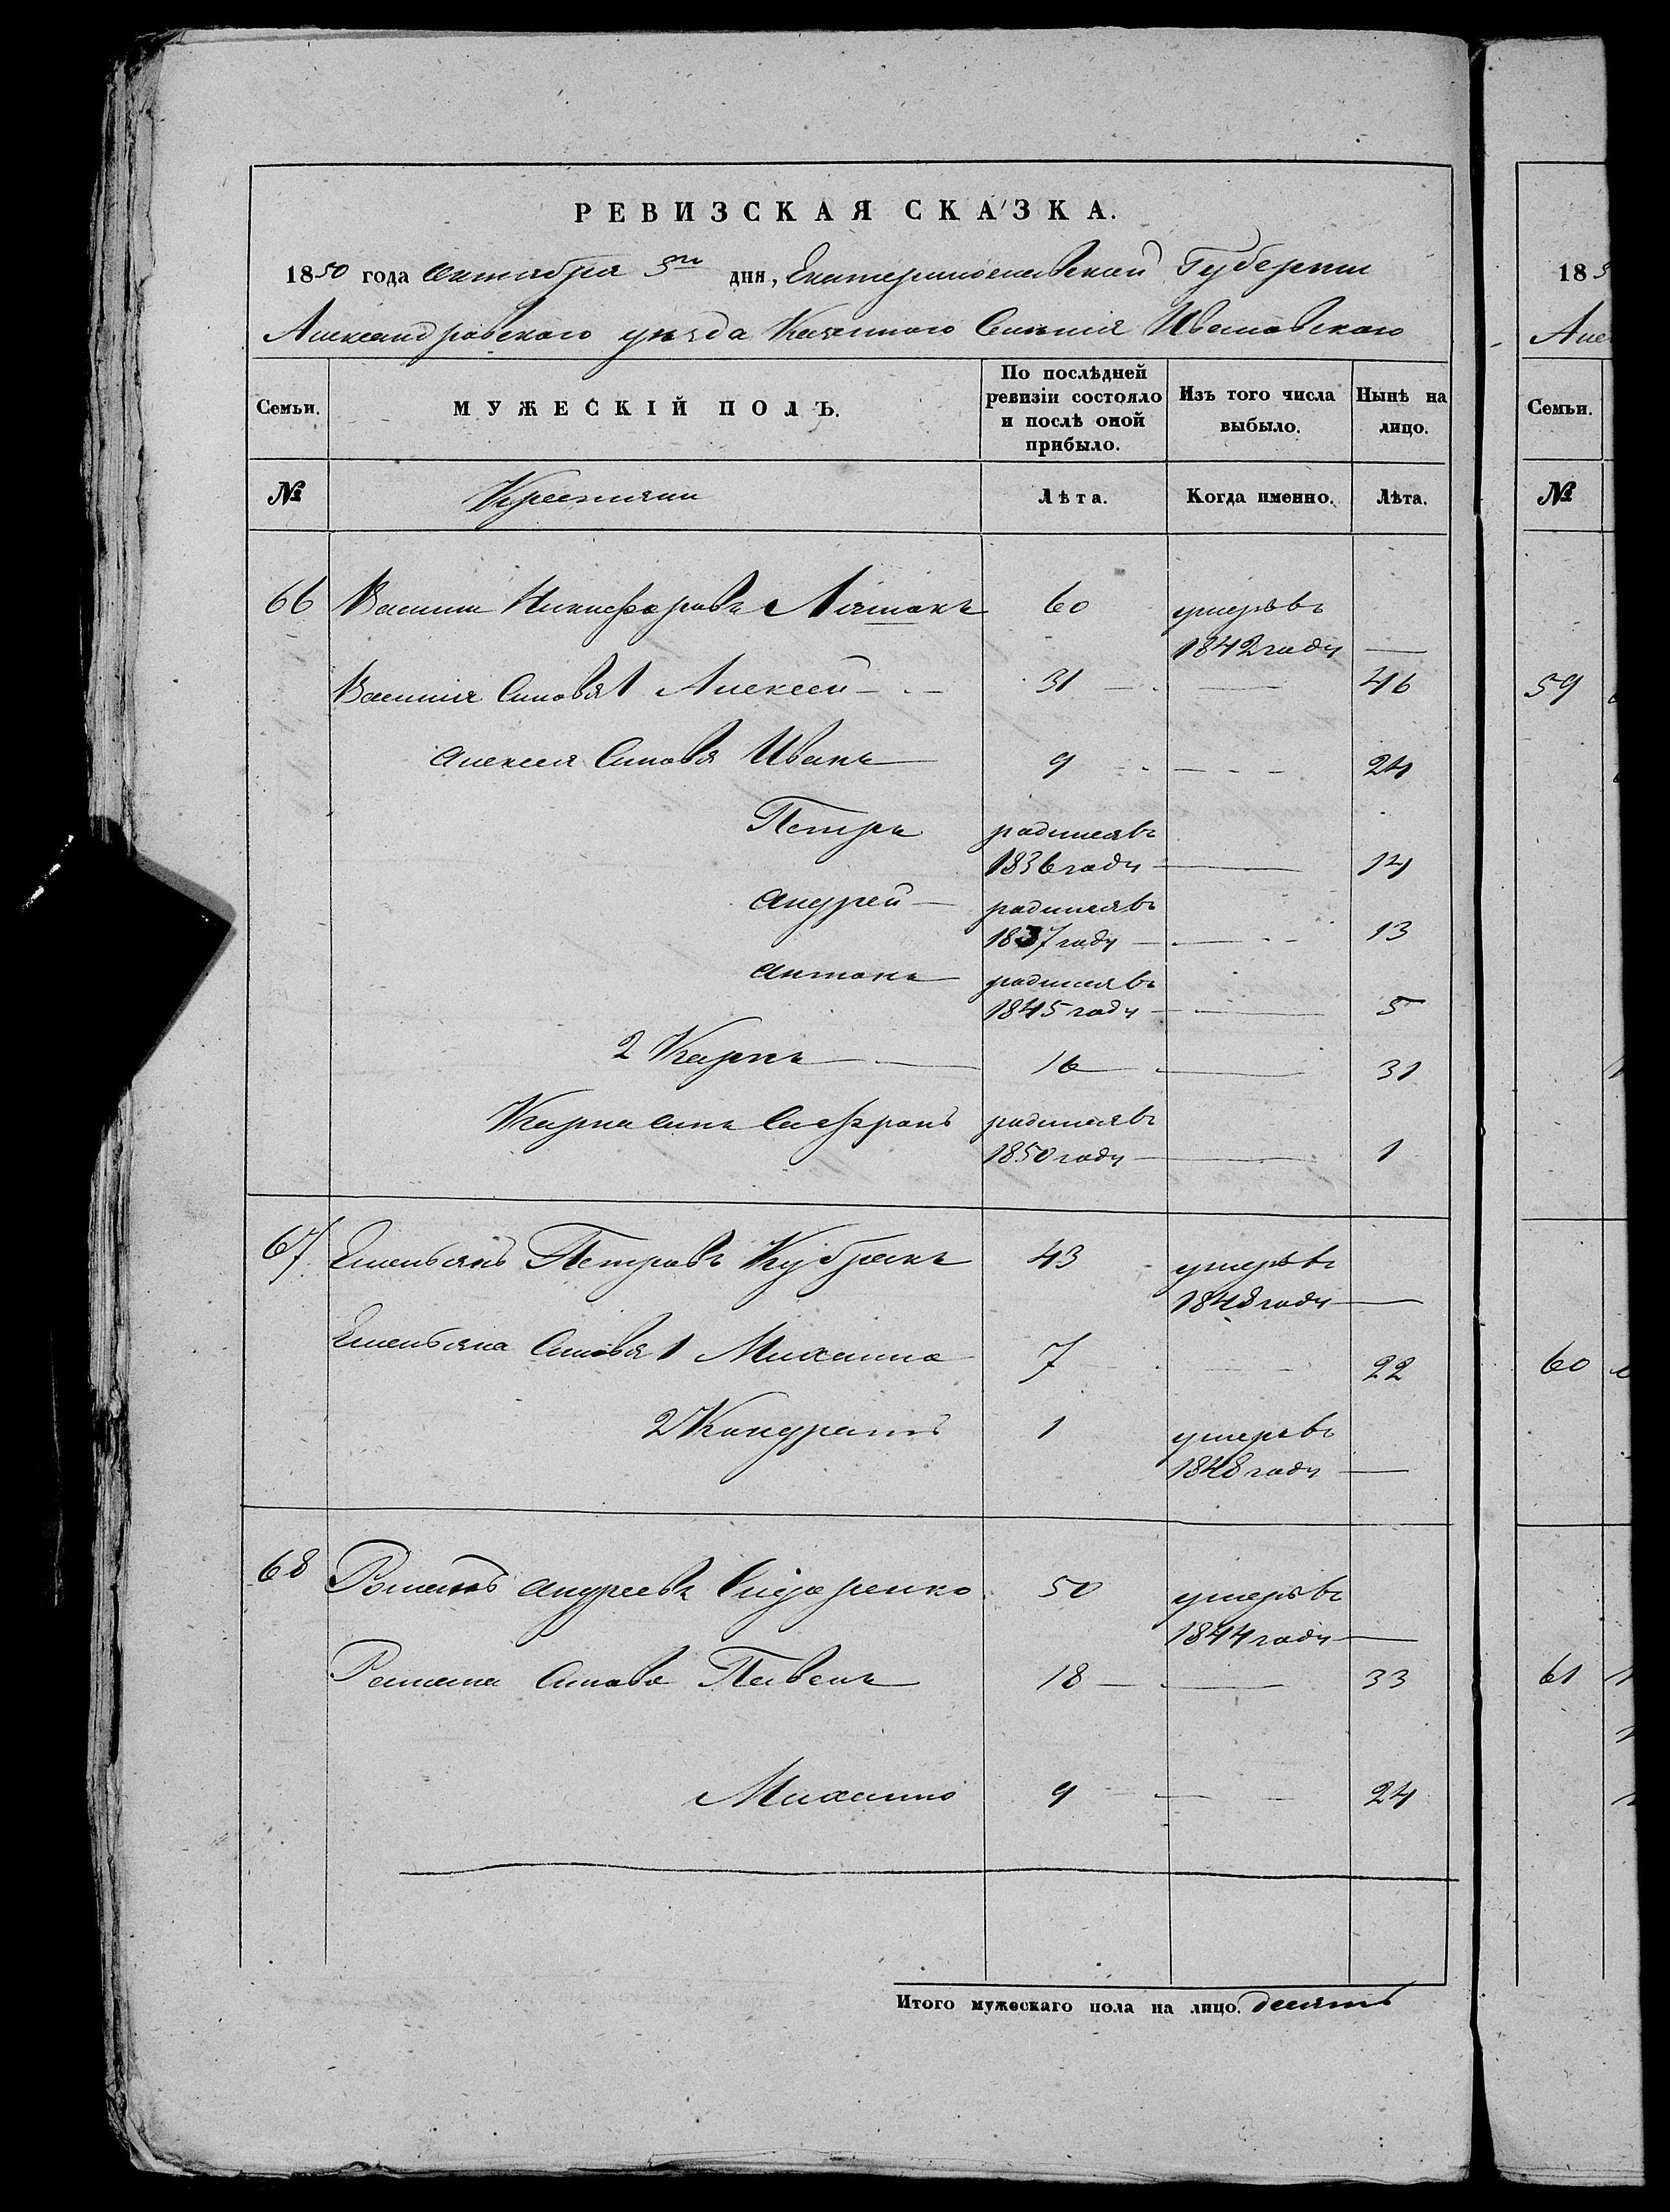 РЕВИЗСКАЯ СКАЗКА.
1850 года Октября 5го дня, Екатеринославской Губернии
Александровского уезда Казенного Сѣленія Ивановского
Семьи. МУЖЕСКІЙ ПОЛЪ. По послѣдней ревизіи состояло и послѣ оной прибыло. Изъ того числа выбыло. Нынѣ на лицо.
№ Крестяни Лѣта. Когда именно. Лѣта.
66 Василии Никифоровъ 60 умеръ въ
1842 году —
Василія Синовя 1 Алексей 31 — 46
Алексея Синовя Иванъ 9 — 24
Петръ родился въ
1836 году — 14
Андрей родился въ
1837 году — 13
Антонъ родился въ
1845 году — 5
2 Карпъ 16 — 31
Карпа Синъ Сафронъ родился въ
1850 году — 1
67 Емельянъ Петровъ Кубракъ 43 умеръ въ
1848 году —
Емельяна Синовя 1 Михаило 7 — 22
2 Кондратъ 1 умеръ въ
1848 году —
68 Романъ Андреевъ Сидоренко 50 умеръ въ
1844 году —
Романа Синовя Павелъ 18 — 33
Михаило 9 — 24
Итого мужескаго пола на лицо. десять
185
Але
Семьи.
№
59
60
61